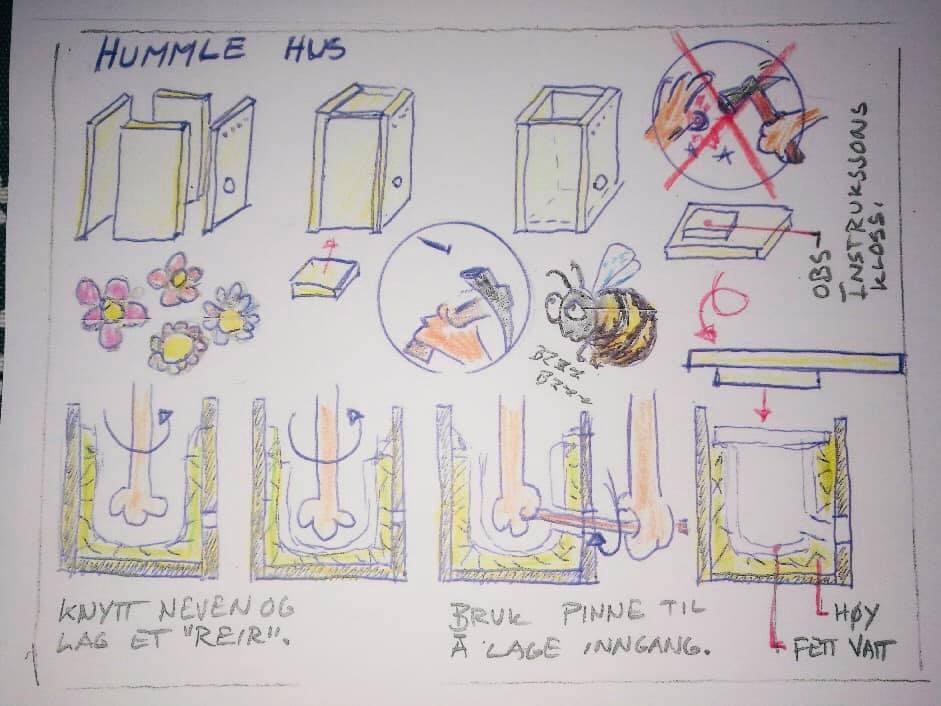 HUMMLE HUS
OBS-
INSTRUKSSONS
KLOSS.
BZZZ
BZZZ
KNYTT NEVEN OG
LAG ET "REIR".
BRUK PINNE TIL
Å LAGE INNGANG.
HØY
FETT VATT